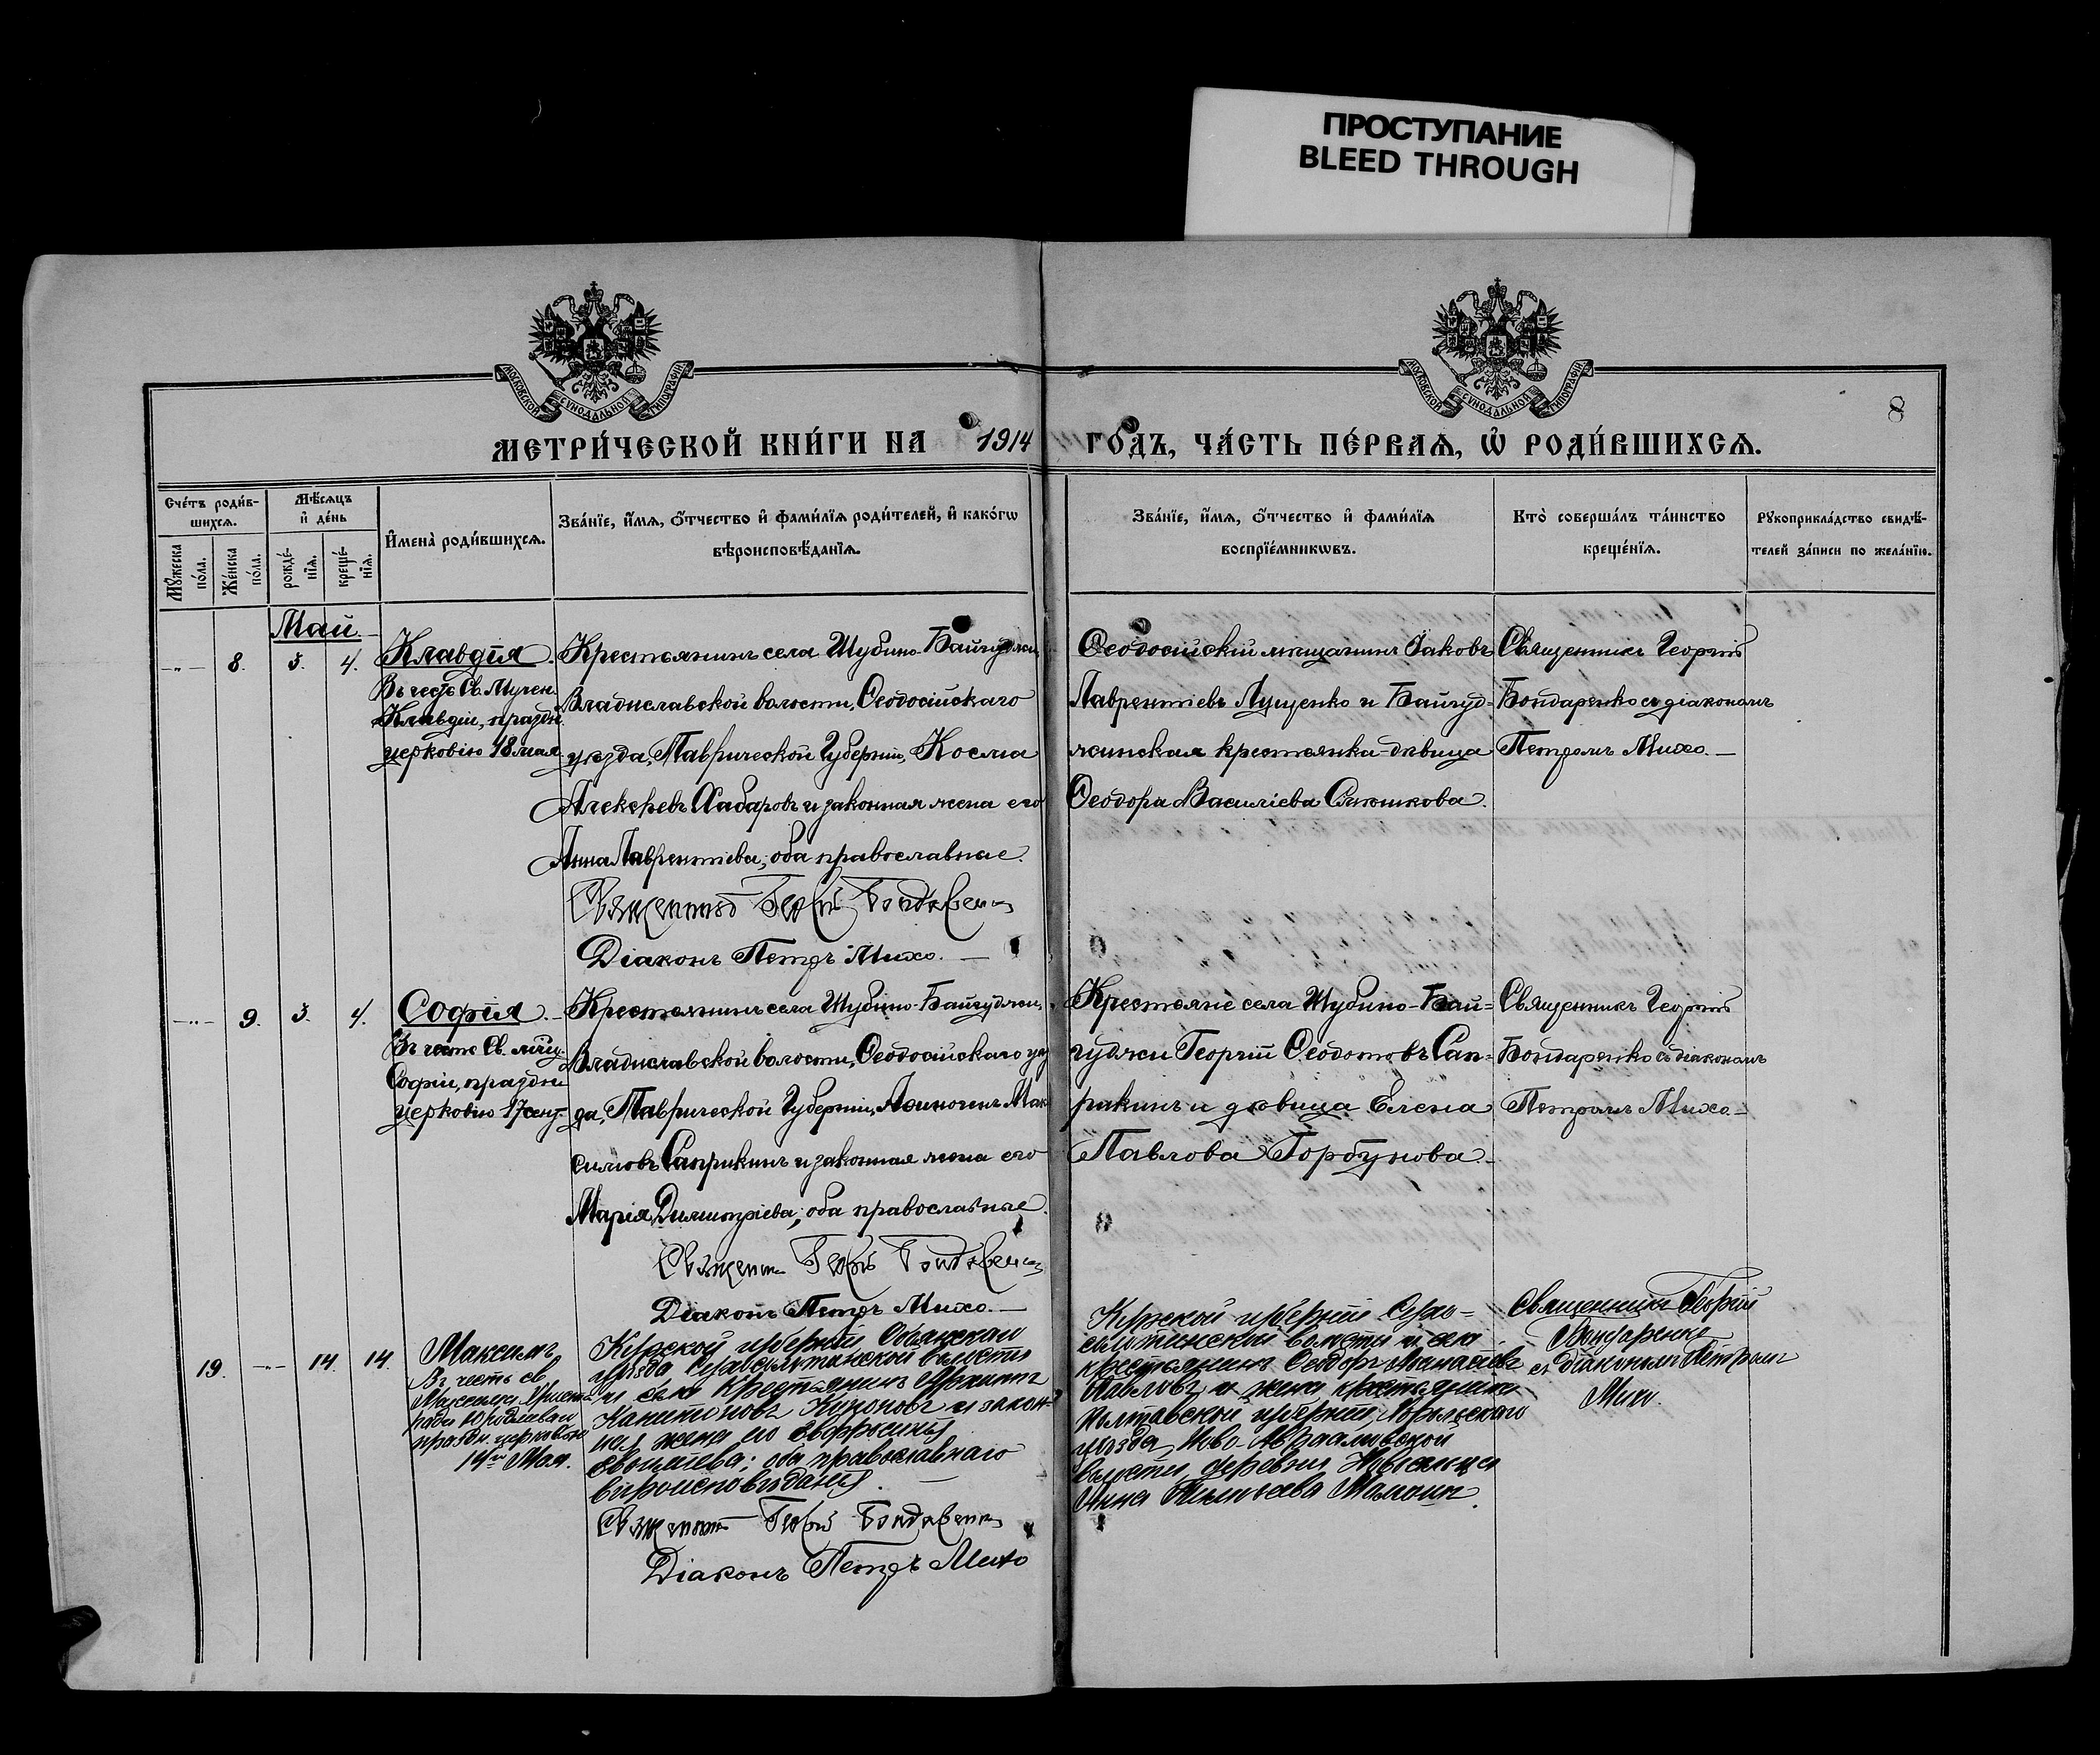 ПРОСТУПАНИЕ
BLEED THROUGH
МОСКОВСКОЙ СѴНОДАЛЬНОЙ ТИПОГРАФІИ
МОСКОВСКОЙ СѴНОДАЛЬНОЙ ТИПОГРАФІИ
8
МЕТРИ́ЧЕСКОЙ КНИ́ГИ НА 1914 ГО́ДЪ, ЧА́СТЬ ПЕ́РВАѦ, Ѡ҆ РОДИ́ВШИХСѦ.
Сче́тъ роди́в-
шихсѧ.
Мꙋ́жеска
по́ла.
Же́нска
по́ла.
Мѣ́сѧцъ
и҆ де́нь
рожде́-
нїѧ.
креще́-
нїѧ.
И҆мена̀ роди́вшихсѧ.
Зва́нїе, и҆́мѧ, ѻ҆́тчество и҆ фами́лїѧ роди́телей, и҆ како́гѡ
вѣроисповѣ́данїѧ.
Зва́нїе, и҆́мѧ, ѻ҆́тчество и҆ фами́лїѧ
воспрїе́мникѡвъ.
Кто̀ соверша́лъ та́инство
креще́нїѧ.
Рꙋкоприкла́дство свидѣ́-
телей за́писи по жела́нїю.
Май.
8. 3. 4. Клавдія.
Въ честь Св. Мучен.
Клавдіи, праздн.
церковію 18 мая.
Крестьянинъ села Шубино-Байгуджи,
Владиславской волости, Ѳеодосійскаго
уѣзда, Таврической Губерніи, Косма
Алексѣевъ Хабаровъ и законная жена его
Анна Лаврентіева; оба православные.
Священникъ Георгій Бондаренко
Діаконъ Петръ Михо.
Ѳеодосійскій мѣщанинъ Іаковъ
Лаврентіевъ Луценко и Байгуд-
жинская крестьянка-дѣвица
Ѳеодора Василіева Сѫшкова.
Священникъ Георгій
Бондаренко съ діакономъ
Петромъ Михо.
9. 3. 4. Софія.
Въ честь Св. мчц.
Софіи, праздн.
церковію 17 сент.
Крестьянинъ села Шубино-Байгуджи,
Владиславской волости, Ѳеодосійскаго уѣз
да, Таврической Губерніи, Аѳиногенъ Мак
симовъ Саприкинъ и законная жена его
Марія Димитріева; оба православные.
Священникъ Георгій Бондаренко
Діаконъ Петръ Михо.
Крестьяне села Шубино-Бай-
гуджи Георгій Ѳеодотовъ Сап-
рикинъ и дѣвица Елена
Павлова Горбунова.
Священникъ Георгій
Бондаренко съ діакономъ
Петромъ Михо.
19. 14. 14. Максимъ
Въ честь св.
Максима Христа
ради Юродиваго
праздн. церковью
14го Мая.
Курской губерніи Обоянскаго
уѣзда волости
и села крестьянинъ
и закон-
ная жена его Евфросинія
оба православнаго
вѣроисповѣданія.
Священникъ Георгій Бондаренко
Діаконъ Петръ Михо
Курской губерніи
волости и села
крестьянинъ Ѳеодоръ
Павловъ и жена крестьянина
Полтавской губерніи,
уѣзда, Ново-Авраамовской
волости, деревни
Анна
Священникъ Георгій
Бондаренко
съ діакономъ Петромъ
Михо.